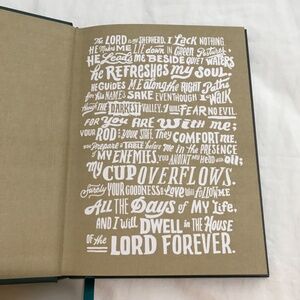 The LORD is my SHEPHERD, I Lack NOTHING.
HE Makes ME LIE down IN Green Pastures,
HE Leads ME BESIDE QUIET WATERS
HE REFRESHES my SOUL.
HE GUIDES ME along the Right Paths
for HIS NAME'S SAKE EVEN though I walk
through the DARKEST VALLEY, I will FEAR NO EVIL
FOR YOU ARE WITH ME;
YOUR ROD & YOUR Staff, They COMFORT ME.
YOU Prepare A TABLE before ME IN the PRESENCE
of MY ENEMIES. YOU ANOINT MY HEAD with OIL;
MY CUP OVERFLOWS.
Surely YOUR GOODNESS & LOVE WILL follow ME
ALL THE Days OF MY Life,
AND I Will DWELL IN the HOUSE
OF the LORD FOREVER.